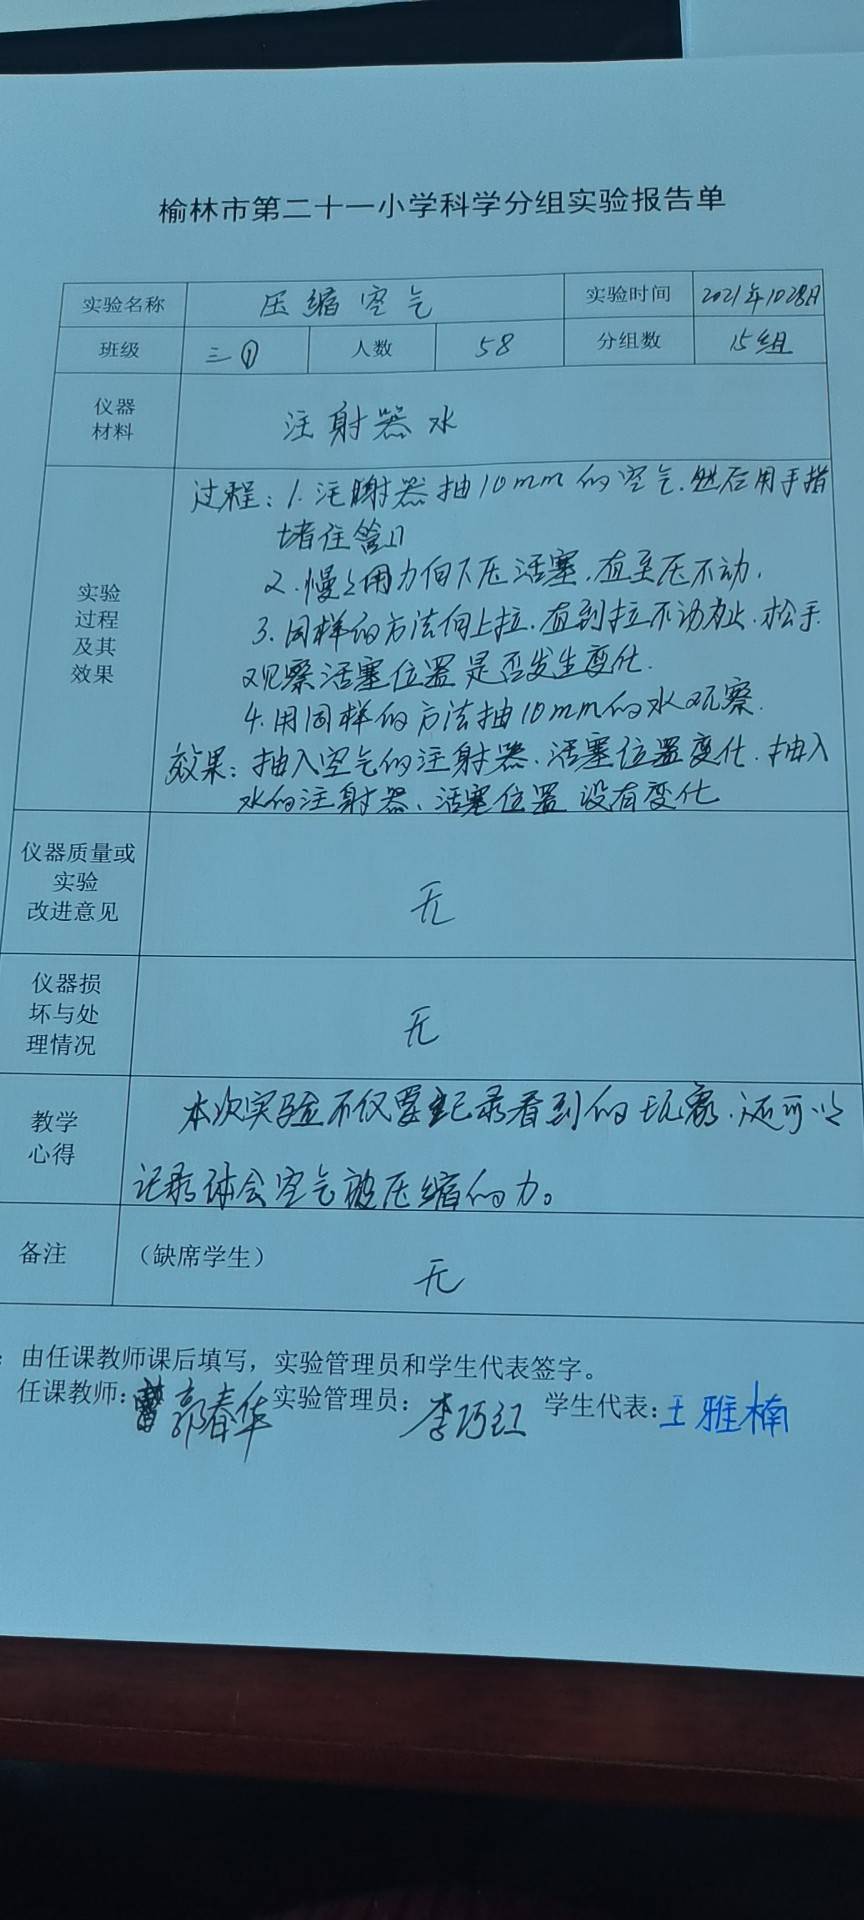 榆林市第二十一小学科学分组实验报告单
实验名称 压缩空气 实验时间 2021年1028日
班级 三① 人数 58 分组数 15组
仪器
材料
注射器 水
实验
过程
及其
效果
过程：1.注射器抽10mm的空气.然后用手指
堵住管口
2.慢慢用力向下压活塞.直至压不动.
3.同样的方法向上拉.直到拉不动为止.松手
观察活塞位置是否发生变化.
4.用同样的方法抽10mm的水观察.
效果：抽入空气的注射器、活塞位置变化.抽入
水的注射器、活塞位置没有变化
仪器质量或
实验
改进意见
无
仪器损
坏与处
理情况
无
教学
心得
本次实验不仅要记录看到的现象.还可以
记录体会空气被压缩的力。
备注
（缺席学生）
无
：由任课教师课后填写，实验管理员和学生代表签字。
任课教师：郭春华 实验管理员：李巧红 学生代表：王雅楠